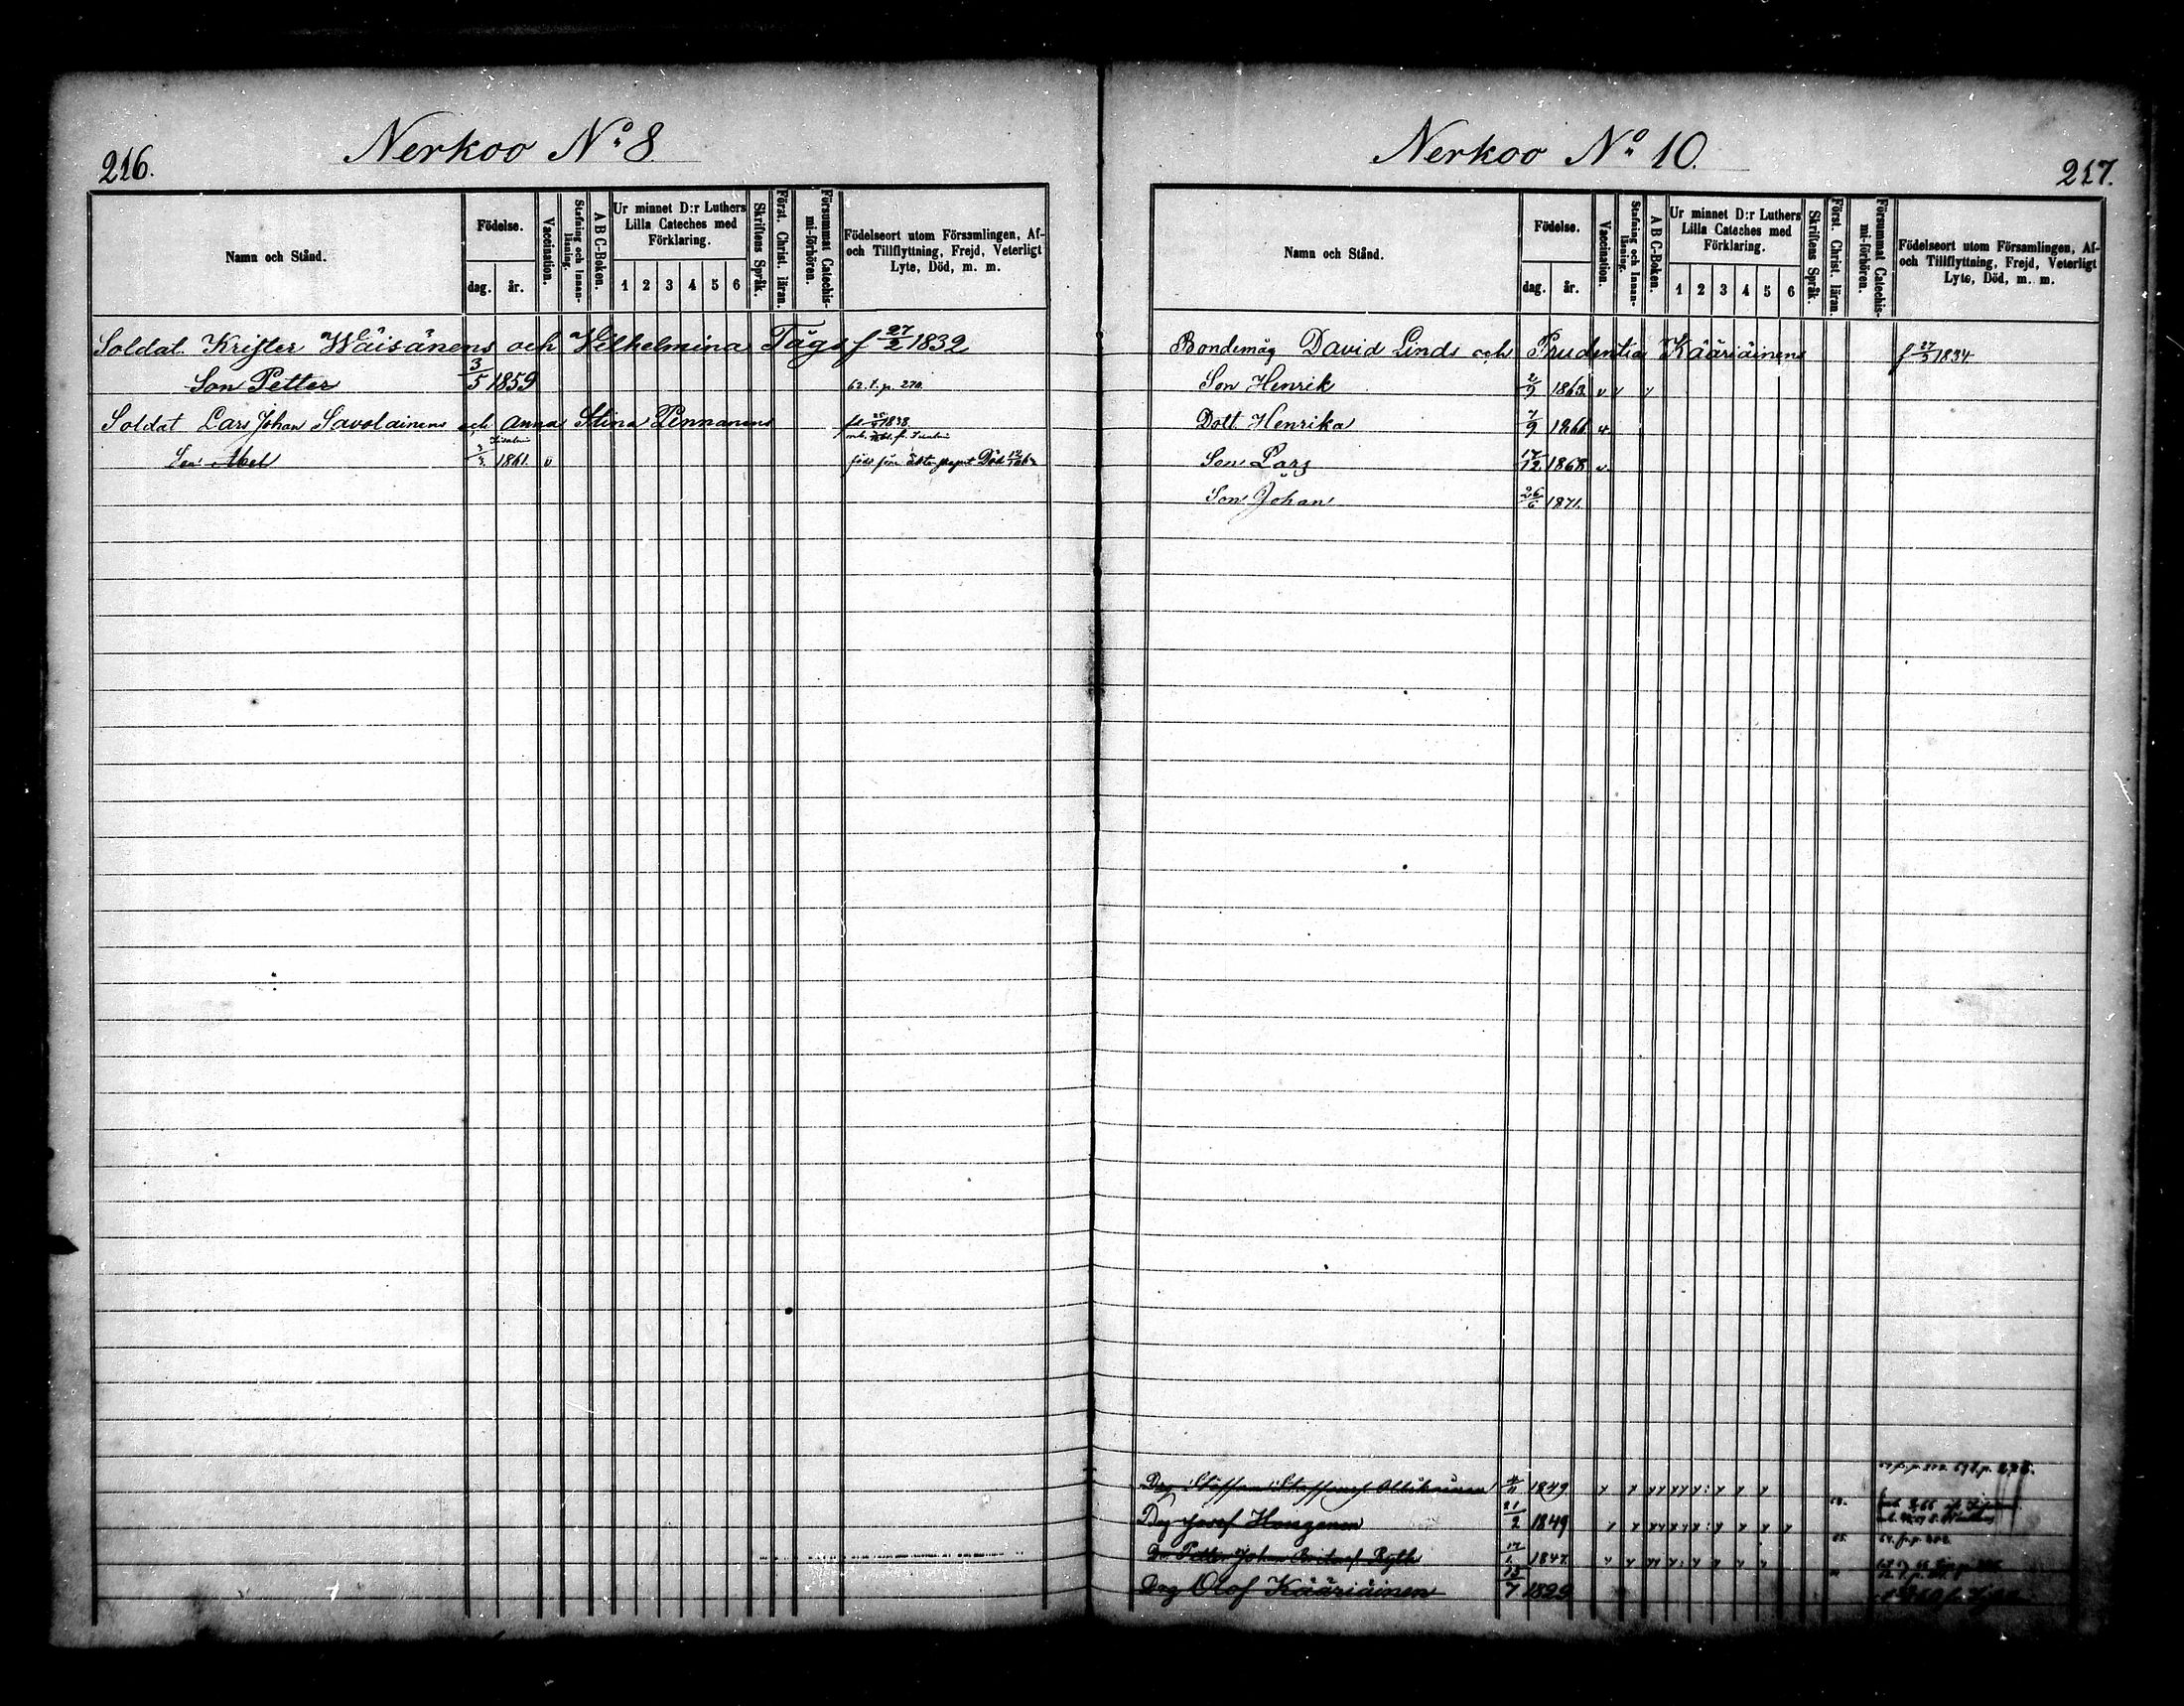 216.
Nerkoo No 8.
Namn och Stånd.
Födelse.
dag. år.
Vaccination.
Stafning och Innanläsning.
A B C-Boken.
Ur minnet D:r Luthers
Lilla Cateches med
Förklaring.
1 2 3 4 5 6
Skriftens Språk.
Först. Christ. läran.
Försummat Catechismi-förhören.
Födelseort utom Församlingen, Af-
och Tillflyttning, Frejd, Veterligt
Lyte, Död, m. m.
Soldat Krister Wäisänens och Wilhelmina Tåg f 27/2 1832
Son Petter 3/5 1859 62. t. p. 270.
Soldat Lars Johan Savolainens och Anna Stina Pennanens 1838.
Son Abel 1861. v Död
Nerkoo No 10.
217.
Namn och Stånd.
Födelse.
dag. år.
Vaccination.
Stafning och Innanläsning.
A B C-Boken.
Ur minnet D:r Luthers
Lilla Cateches med
Förklaring.
1 2 3 4 5 6
Skriftens Språk.
Först. Christ. läran.
Försummat Catechismi-förhören.
Födelseort utom Församlingen, Af-
och Tillflyttning, Frejd, Veterligt
Lyte, Död, m. m.
Bondemåg David Linds och Prudentia Kääriäinens f 27/5 1834
Son Henrik 2/9 1863. v v v
Dott. Henrika 7/9 1866. v.
Son Lars 17/12 1868 v.
Son Johan 26/6 1871.
1849
Dreg Josef Honganen 21/2 1849
Petter Johan 1847.
Dreg Olof Kääriäinen 13/7 1829